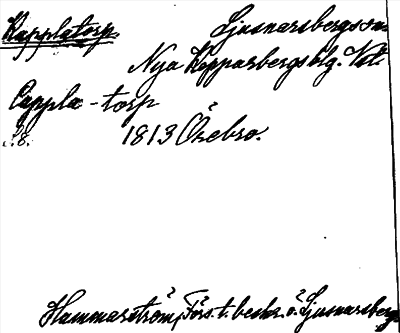 Kapplatorp. Ljusnarsbergs sn.
Nya Kopparbergs blg. Vst.
Cappla - torp
s. 8. 1813 Örebro.
Hammarström, Förs. t. beskr. ö. Ljusnarsberg